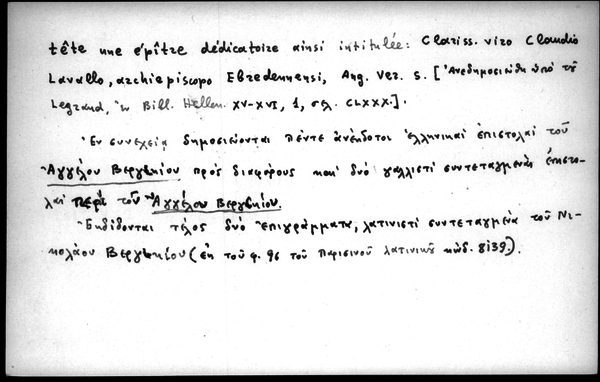 tête une épître dédicatoire ainsi intitulée: Clariss. viro Claudio
Lavallo, archiepiscopo Ebredunensi, Ang. Ver. S. [Ἀνεδημοσιεύθη ὑπὸ τοῦ
Legrand, ἐν Bibl. Hellén. XV-XVI, 1, σελ. CLXXX.].
Ἐν συνεχείᾳ δημοσιεύονται πέντε ἀνέκδοτοι ἑλληνικαὶ ἐπιστολαὶ τοῦ
Ἀγγέλου Βεργικίου πρὸς διαφόρους καὶ δύο γαλλιστὶ συντεταγμέναι ἐπιστο-
λαὶ περὶ τοῦ Ἀγγέλου Βεργικίου.
Ἐκδίδονται τέλος δύο ἐπιγράμματα, λατινιστὶ συντεταγμένα τοῦ Νι-
κολάου Βεργικίου (ἐκ τοῦ φ. 96 τοῦ Παρισινοῦ λατινικοῦ κώδ. 8139.).